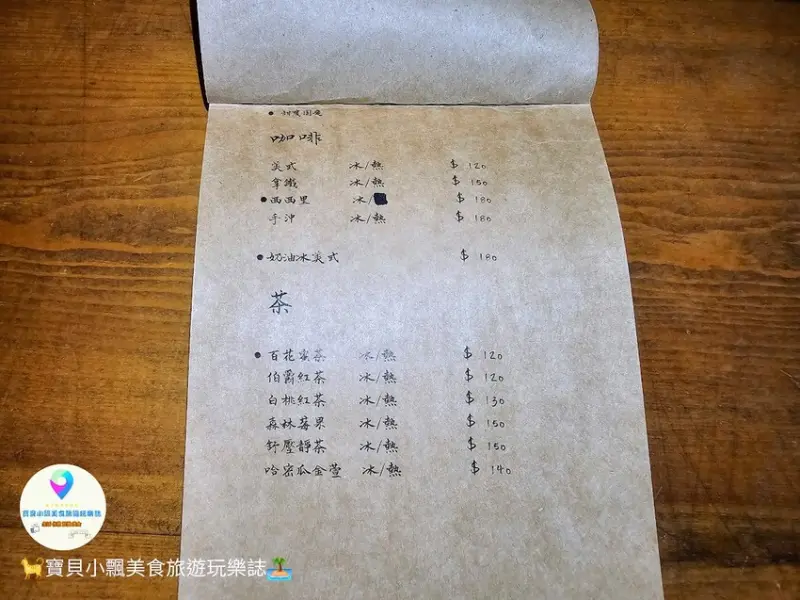 ● 甜度固定
咖啡
美式 冰/熱 $ 120
拿鐵 冰/熱 $ 150
●西西里 冰/ $ 180
手沖 冰/熱 $ 180
●奶油冰美式 $ 180
茶
●百花蜜茶 冰/熱 $ 120
伯爵紅茶 冰/熱 $ 120
白桃紅茶 冰/熱 $ 130
森林莓果 冰/熱 $ 150
舒壓靜茶 冰/熱 $ 150
哈密瓜金萱 冰/熱 $ 140
寶貝小飄美食旅遊玩樂誌
寶貝小飄美食旅遊玩樂誌